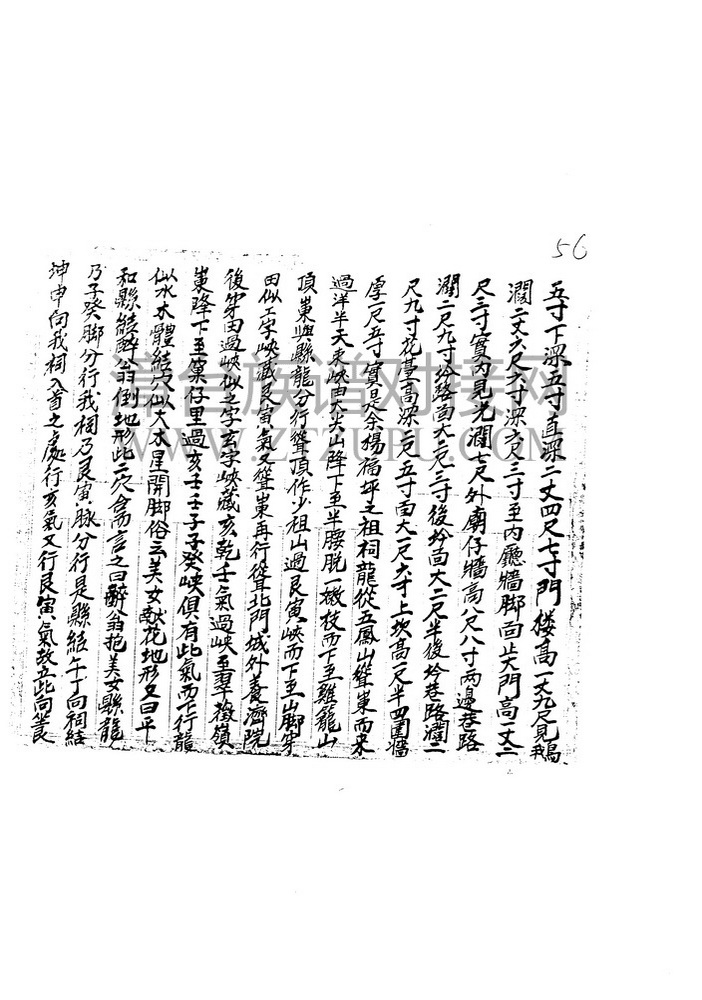 56
五寸下深五寸直深二丈四尺七寸門楼高一丈九尺見鵝
濶二丈六尺六寸深六尺三寸至内廳墻脚面止大門高一丈二
尺三寸實内見光濶七尺外廟仔墻高八尺八寸两邊巷路
濶二尺九寸坽路面大二尺三寸後坽面大二尺半後坽巷路濶二
尺九寸花臺高深二尺五寸面大一尺六寸上坎高一尺半四圍墻
厚一尺五寸實是余楊福坪之祖祠龍從五鳳山聳崬而来
過洋半天束峽由大尖山降下至半腰脱一嫩枝而下至雞籠山
頂崬與縣龍分行聳頂作少祖山過艮寅峽而下至山脚穿
田似工字峽藏艮寅氣又聳崬再行聳北門城外養濟院
後穿田過峽似之字玄字峽藏亥乾壬氣過峽至翠嶺
崬降下至菓仔里過亥壬子癸峽俱有此氣而下行龍
似水木體結穴似大木星開脚俗云美女献花地形又曰平
和縣結醉翁倒地形此二穴合而言之曰醉翁抱美女縣龍
乃子癸脚分行我祠乃艮寅脉分行是縣結午丁向祠結
坤申向我祠入首之處行亥氣又行艮寅氣故立此向坐艮
漳台族谱对接网
WWW.ZTZUPU.COM